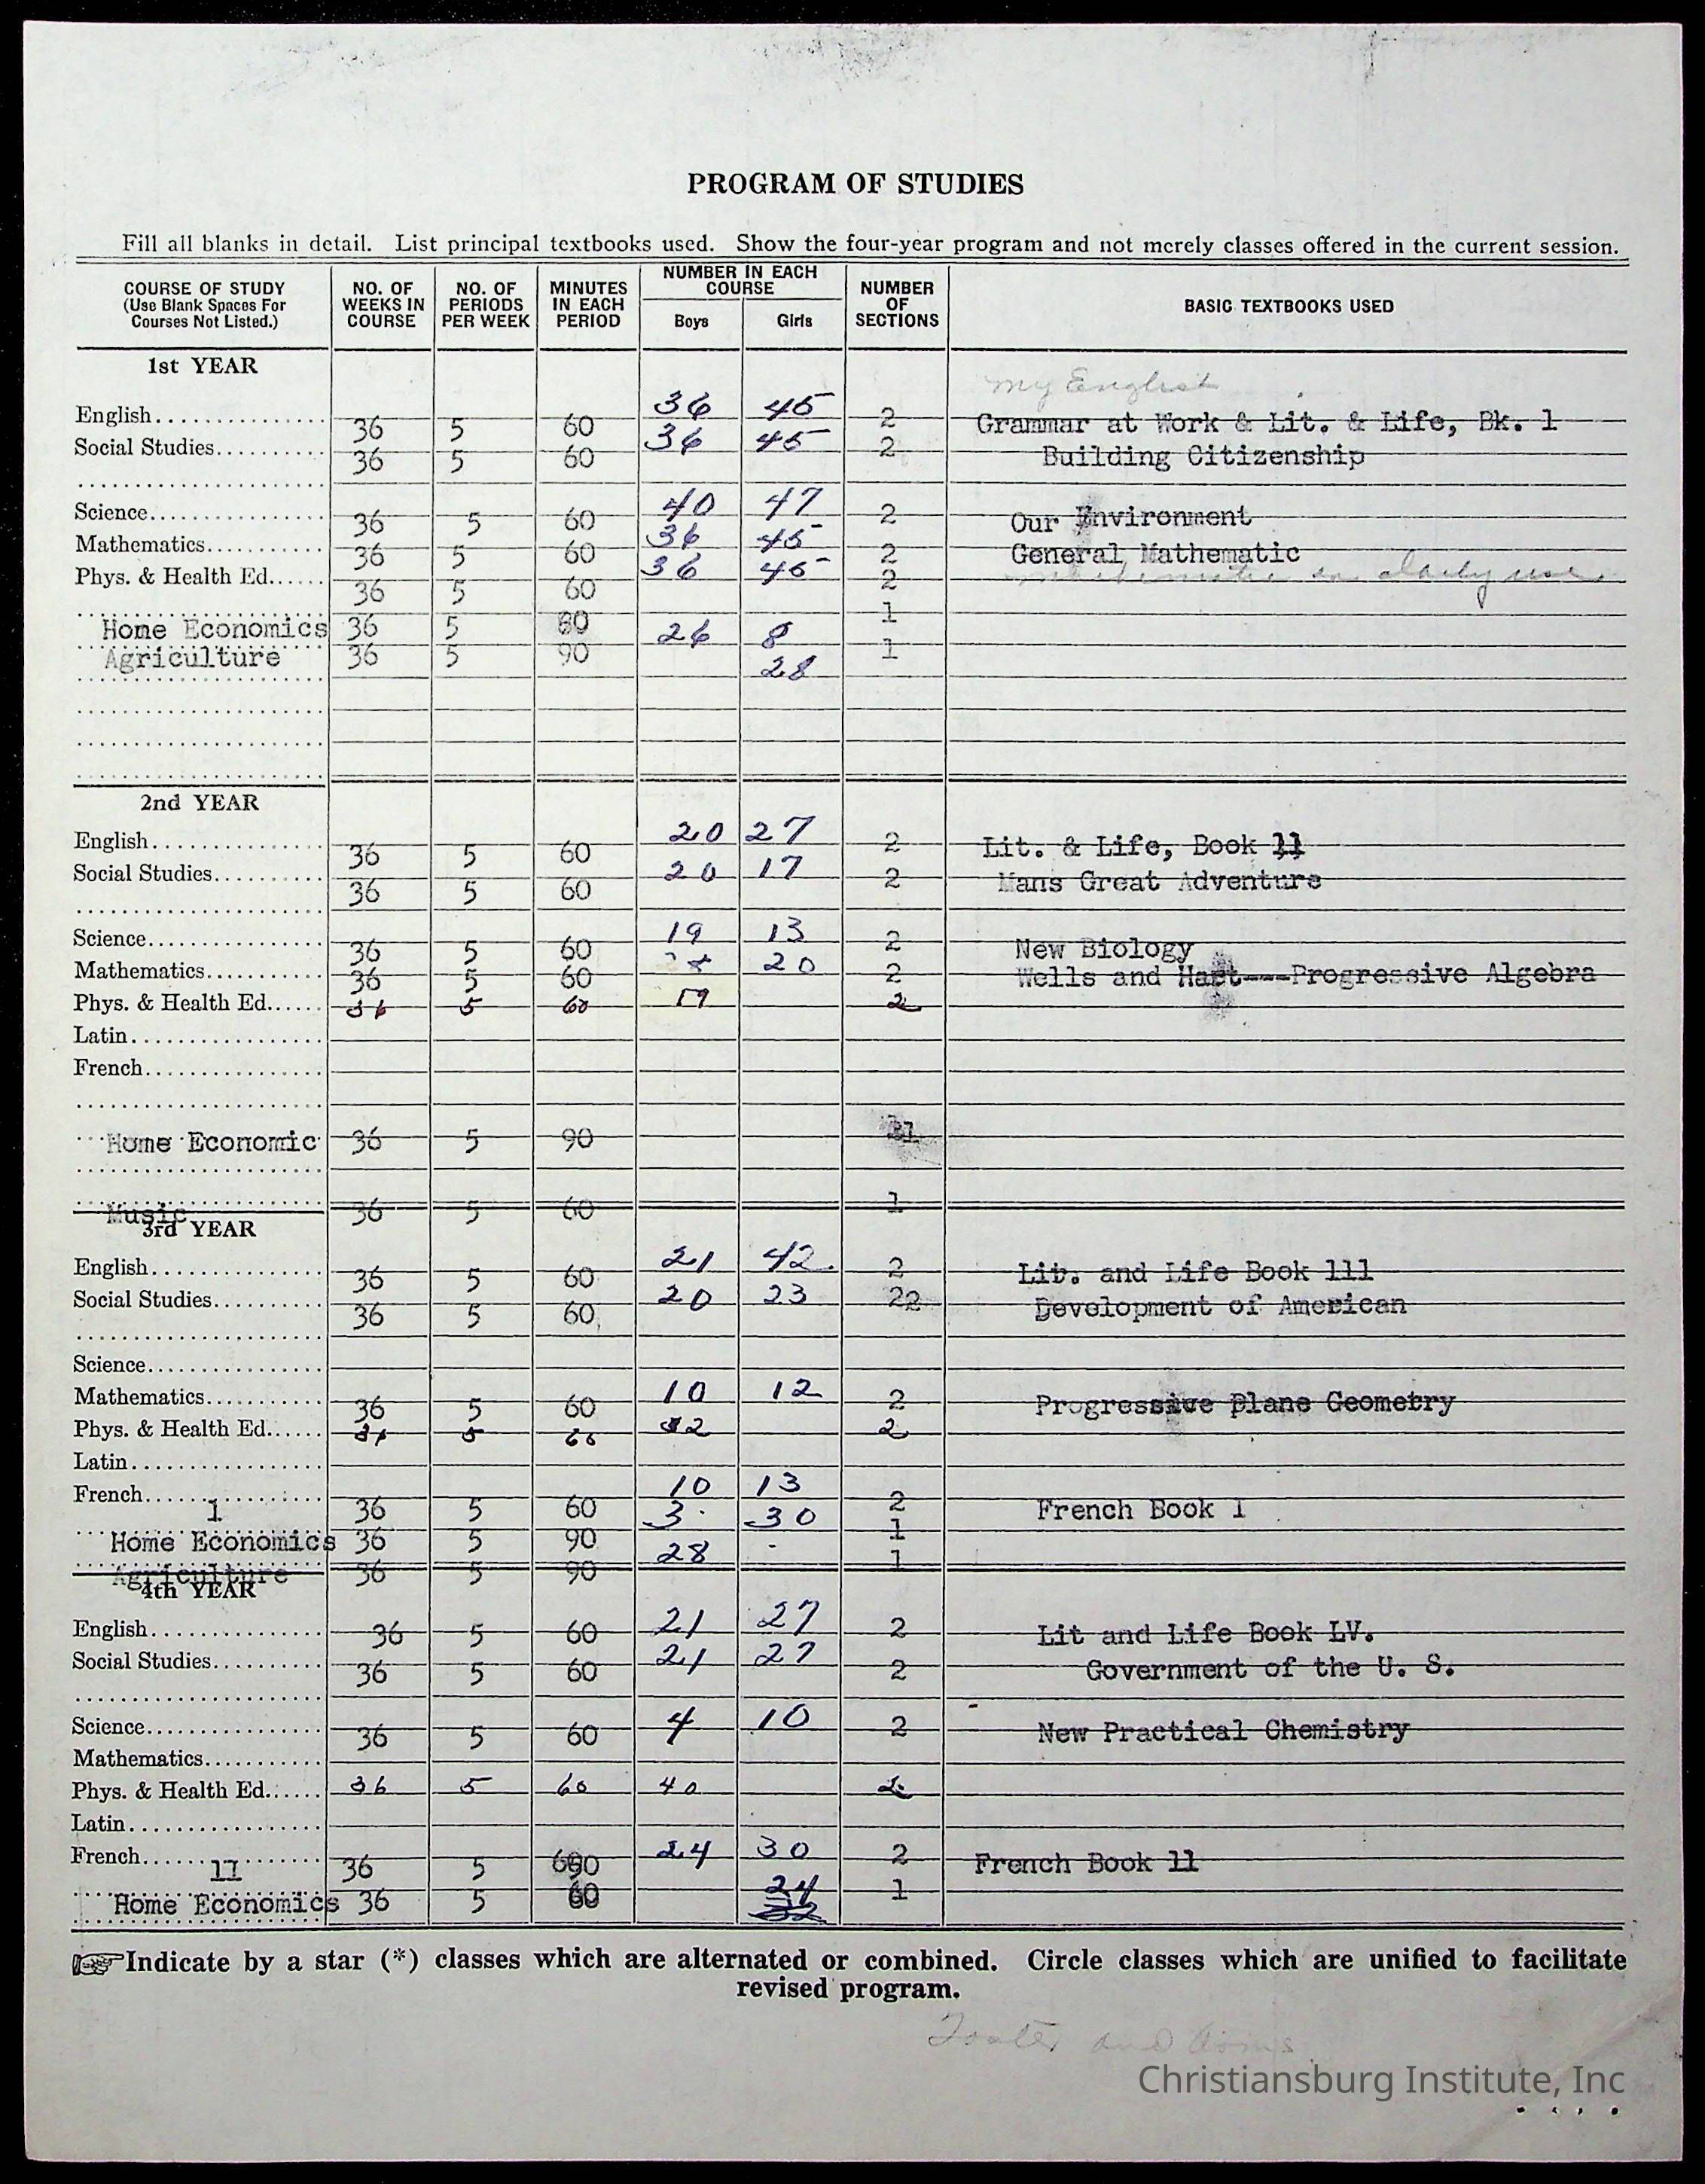 PROGRAM OF STUDIES
Fill all blanks in detail. List principal textbooks used. Show the four-year program and not merely classes offered in the current session.
COURSE OF STUDY (Use Blank Spaces For Courses Not Listed.) NO. OF WEEKS IN COURSE NO. OF PERIODS PER WEEK MINUTES IN EACH PERIOD NUMBER IN EACH COURSE Boys Girls NUMBER OF SECTIONS BASIC TEXTBOOKS USED
1st YEAR
My English
English 36 5 60 36 45 2 Grammar at Work & Lit. & Life, Bk. 1
Social Studies 36 5 60 36 45 2 Building Citizenship
Science 36 5 60 40 47 2 Our Environment
Mathematics 36 5 60 36 45 2 General Mathematic
Phys. & Health Ed. 36 5 60 36 45 2 in daily use
Home Economics 36 5 90 26 8 1
Agriculture 36 5 90 28 1
2nd YEAR
English 36 5 60 20 27 2 Lit. & Life, Book 11
Social Studies 36 5 60 20 17 2 Mans Great Adventure
Science 36 5 60 19 13 2 New Biology
Mathematics 36 5 60 20 2 Wells and Hart---Progressive Algebra
Phys. & Health Ed. 36 5 60 19 2
Latin
French
Home Economic 36 5 90
Music 36 5 60 1
3rd YEAR
English 36 5 60 21 42 2 Lit. and Life Book 111
Social Studies 36 5 60 20 23 22 Development of American
Science
Mathematics 36 5 60 10 12 2 Progressive Plane Geometry
Phys. & Health Ed. 36 5 60 32 2
Latin
French 1 36 5 60 10 13 2 French Book 1
Home Economics 36 5 90 3 30 1
Agriculture 36 5 90 28 - 1
4th YEAR
English 36 5 60 21 27 2 Lit and Life Book LV.
Social Studies 36 5 60 21 27 2 Government of the U. S.
Science 36 5 60 4 10 2 New Practical Chemistry
Mathematics
Phys. & Health Ed. 36 5 60 40 2
Latin
French 11 36 5 24 30 2 French Book 11
Home Economics 36 5 60 24 1
Indicate by a star (*) classes which are alternated or combined. Circle classes which are unified to facilitate
revised program.
and
Christiansburg Institute, Inc